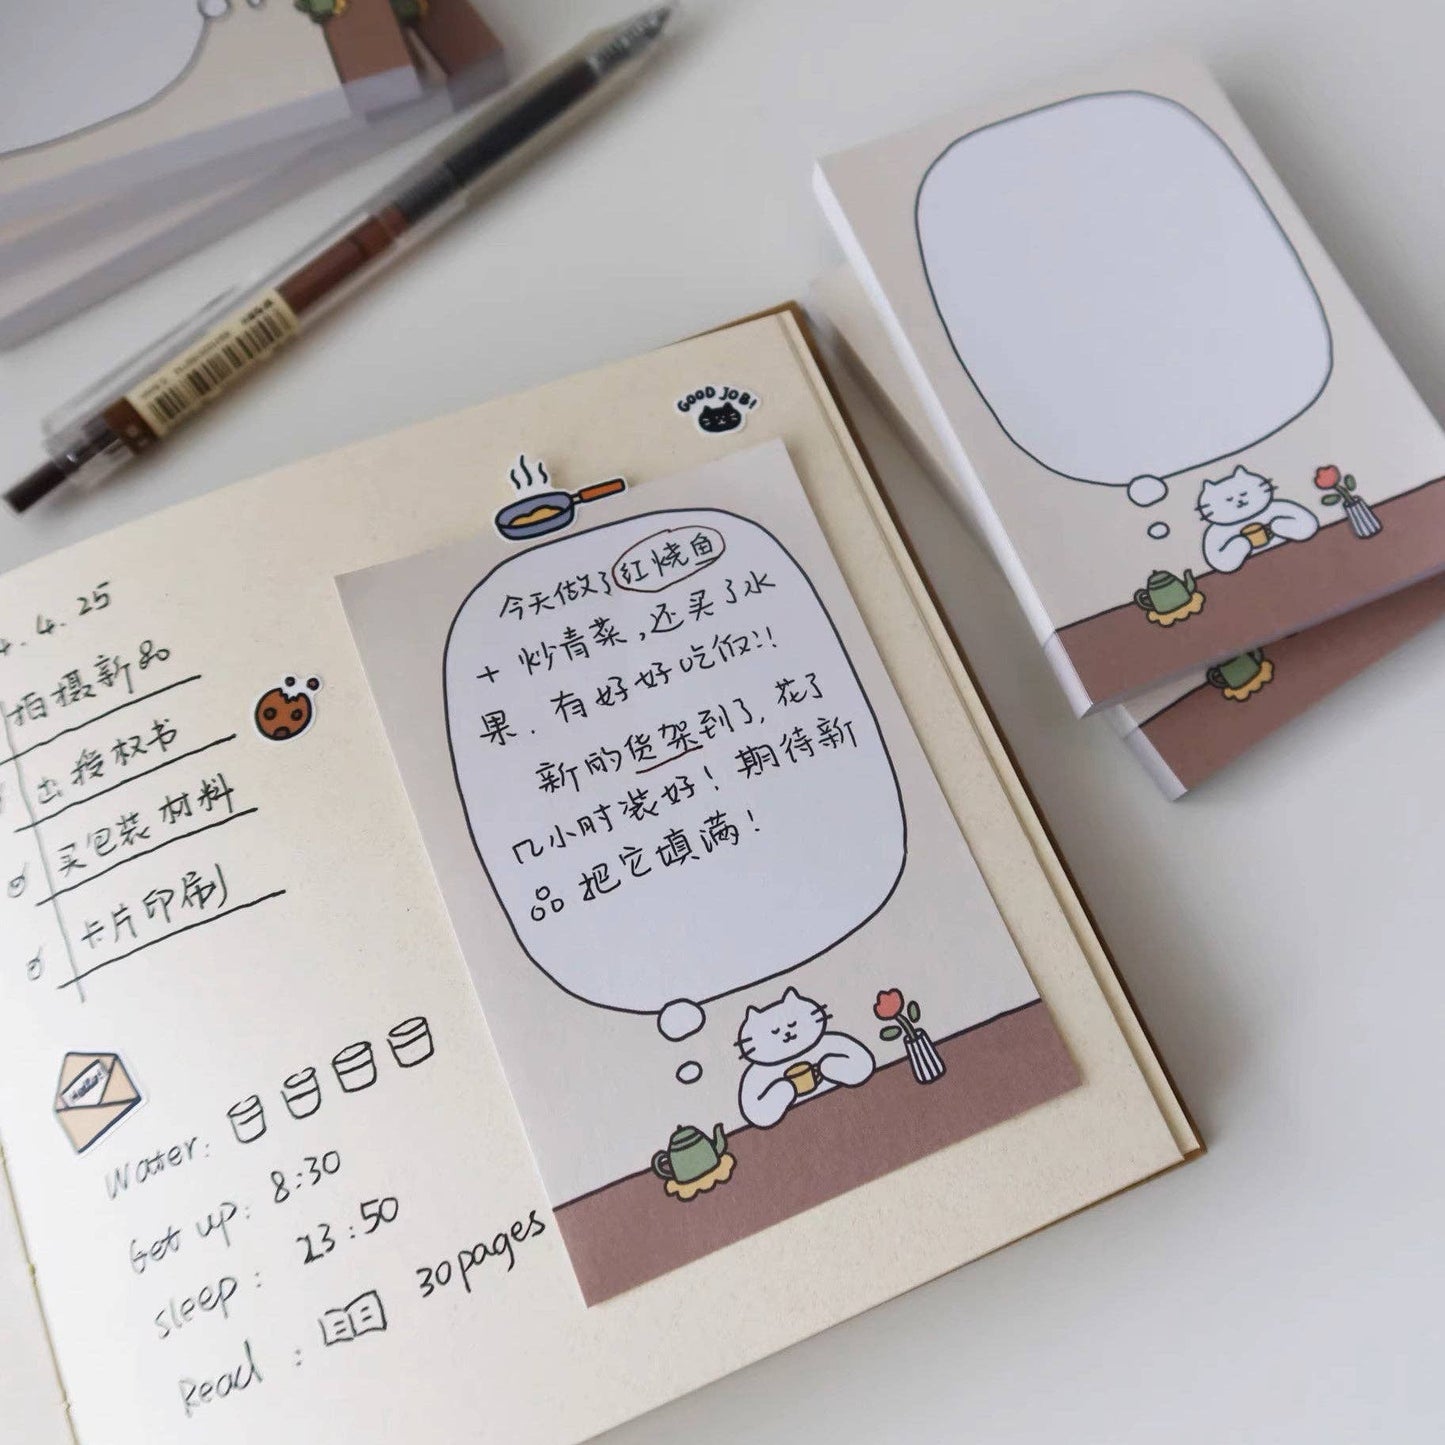 GOOD JOB!
4.4.25
拍摄新品
出授权书
买包装材料
卡片印刷
Water:
Get up: 8:30
sleep: 23:50
Read: 30pages
今天做了红烧鱼
+ 炒青菜,还买了水
果.有好好吃饭!!
新的货架到了,花了
几小时装好!期待新
品把它填满!